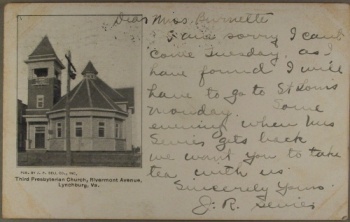 Dear Miss Burnette
I am sorry I can't
come Tuesday as I
have found I will
have to go to St Louis
Monday. Some
evening when Mrs
Sevier gets back
we want you to take
tea with us.
Sincerely Yours.
J. R. Sevier
PUB. BY J. P. BELL CO., INC.
Third Presbyterian Church, Rivermont Avenue,
Lynchburg, Va.